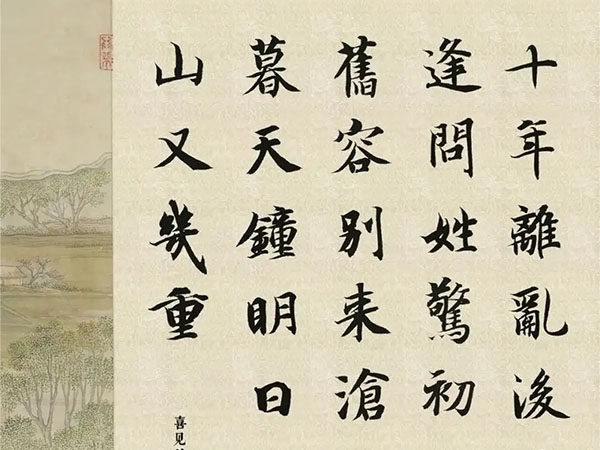 十年離亂後
逢問姓驚初
舊容別来滄
暮天鐘明日
山又幾重
喜见